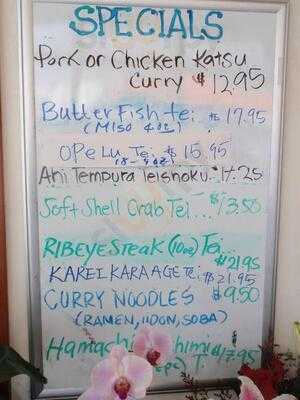 SPECIALS
Pork or Chicken Katsu
Curry $12.95
Butter Fish Tei $17.95
(Miso 4oz)
OPeLu Tei $15.95
Ahi Tempura Teishoku 14.25
Soft Shell Crab Tei... $13.50
RIBEYE STEAK (10oz) Tei...
$21.95
KAREI KARAAGE Tei $21.95
CURRY NOODLES $9.50
(RAMEN, UDON, SOBA)
Hamachi $17.95